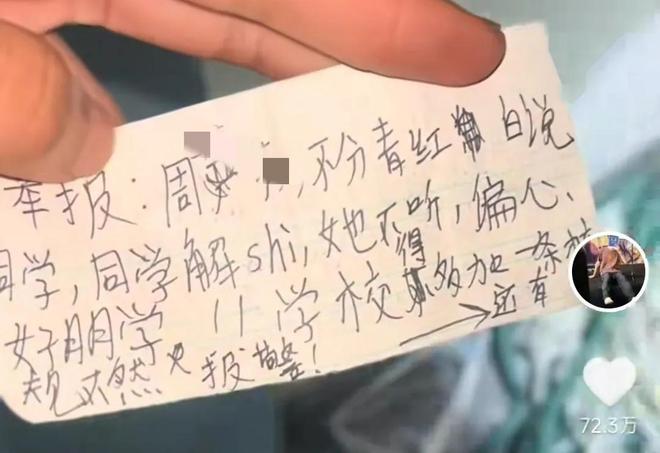 举报:周 不分青红 白说
同学,同学解shi,她不听,偏心、
好朋学 学校得多加一条校
规 不然 报警! 还有
72.3万